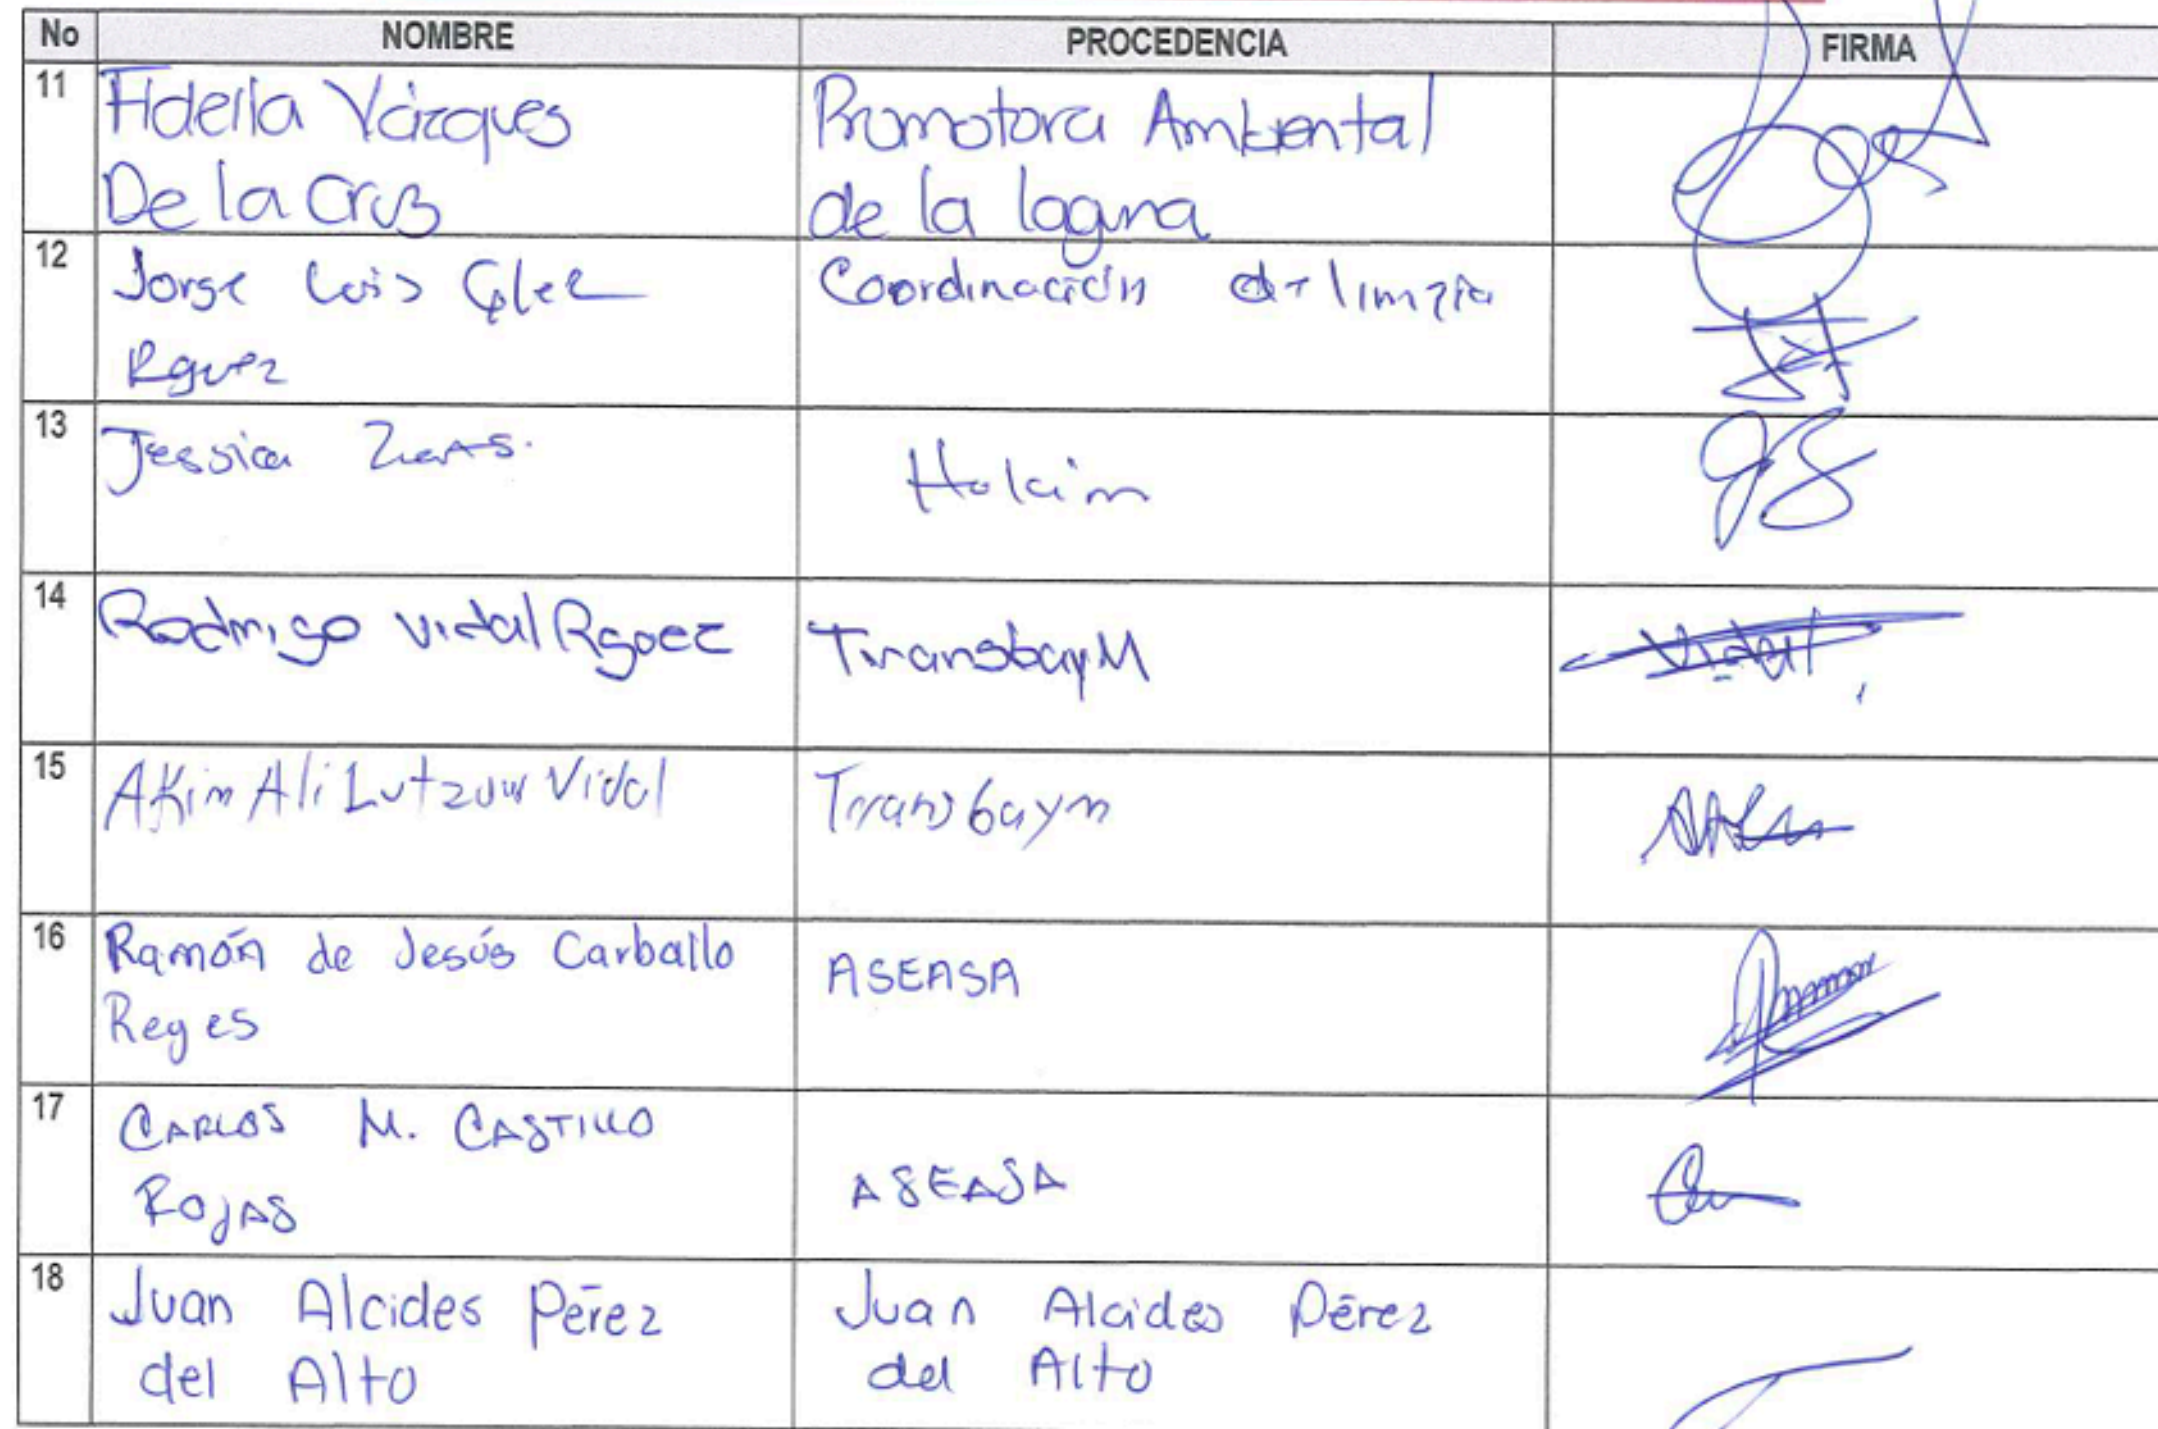 No NOMBRE PROCEDENCIA FIRMA
11 Fidelia Vázques Promotora Ambiental
De la Cruz de la laguna
12 Jorge Luis Glez Coordinación de limpia
Rguez
13 Jessica Holcim
14 Rodrigo Vidal Rguez TransbayM Vidal
15 Akim Ali Lutzow Vidal Transbaym
16 Ramón de Jesús Carballo ASEASA
Reyes
17 CARLOS M. CASTILLO ASEASA
ROJAS
18 Juan Alcides Pérez Juan Alcides Pérez
del Alto del Alto